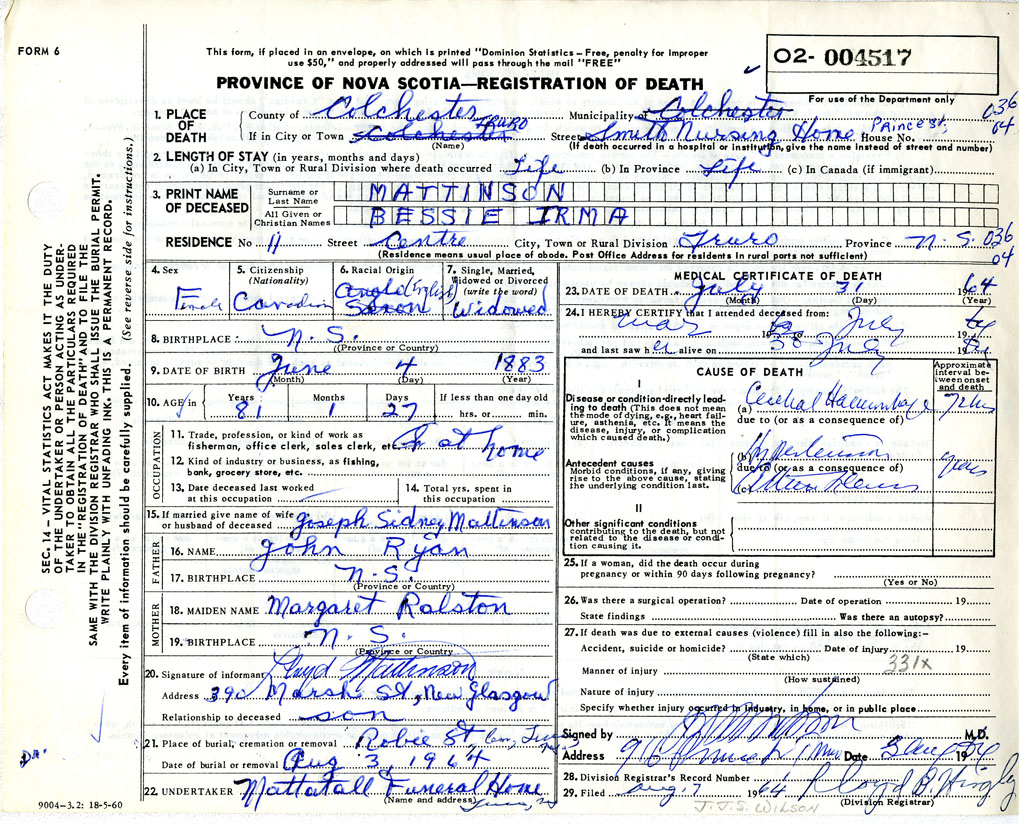 FORM 6
This form, if placed in an envelope, on which is printed "Dominion Statistics – Free, penalty for improper
use $50," and properly addressed will pass through the mail "FREE"
O2- 004517
PROVINCE OF NOVA SCOTIA—REGISTRATION OF DEATH
For use of the Department only
1. PLACE OF DEATH
County of Colchester Municipality of Colchester 036
If in City or Town Colchester TRURO Street Smith Nursing Home House No. Prince St. 04
(Name) (If death occurred in a hospital or institution, give the name instead of street and number)
2. LENGTH OF STAY (in years, months and days)
(a) In City, Town or Rural Division where death occurred Life (b) In Province Life (c) In Canada (if immigrant)
3. PRINT NAME OF DECEASED
Surname or Last Name MATTINSON
All Given or Christian Names BESSIE IRMA
RESIDENCE No 11 Street Centre City, Town or Rural Division Truro Province N.S. 036
(Residence means usual place of abode. Post Office Address for residents in rural parts not sufficient) 04
4. Sex Female
5. Citizenship (Nationality) Canadian
6. Racial Origin Anglo (English) Saxon
7. Single, Married, Widowed or Divorced (write the word) Widowed
8. BIRTHPLACE N.S.
(Province or Country)
9. DATE OF BIRTH June 4 1883
(Month) (Day) (Year)
10. AGE in Years Months Days If less than one day old
81 1 27 hrs. or min.
OCCUPATION
11. Trade, profession, or kind of work as
fisherman, office clerk, sales clerk, etc. at home
12. Kind of industry or business, as fishing,
bank, grocery store, etc.
13. Date deceased last worked
at this occupation
14. Total yrs. spent in
this occupation
15. If married give name of wife
or husband of deceased Joseph Sidney Mattinson
FATHER
16. NAME John Ryan
17. BIRTHPLACE N.S.
(Province or Country)
MOTHER
18. MAIDEN NAME Margaret Ralston
19. BIRTHPLACE N.S.
(Province or Country
20. Signature of informant Lloyd Mattinson
Address 390 Marsh St, New Glasgow
Relationship to deceased son
21. Place of burial, cremation or removal Robie St Cem, Truro
Date of burial or removal Aug 3, 1964
22. UNDERTAKER Mattatall Funeral Home
(Name and address)
9004–3.2: 18-5-60
MEDICAL CERTIFICATE OF DEATH
23. DATE OF DEATH July 31 1964
(Month) (Day) (Year)
24. I HEREBY CERTIFY that I attended deceased from:
July 19
and last saw her alive on 30 July 19
CAUSE OF DEATH
Approximate interval between onset and death
I
Disease or condition-directly leading to death (This does not mean the mode of dying, e.g., heart failure, asthenia, etc. It means the disease, injury, or complication which caused death.)
(a) Cerebral Haemorrhage 72 hrs
due to (or as a consequence of)
Antecedent causes
Morbid conditions, if any, giving rise to the above cause, stating the underlying condition last.
(b) Hypertension years
due to (or as a consequence of)
(c)
II
Other significant conditions
contributing to the death, but not related to the disease or condition causing it.
25. If a woman, did the death occur during
pregnancy or within 90 days following pregnancy?
(Yes or No)
26. Was there a surgical operation? Date of operation 19
State findings Was there an autopsy?
27. If death was due to external causes (violence) fill in also the following:–
Accident, suicide or homicide? Date of injury 19
(State which)
331x
Manner of injury
(How sustained)
Nature of injury
Specify whether injury occurred in industry, in home, or in public place
Signed by M.D.
Address Date 3 Aug 19
28. Division Registrar's Record Number
29. Filed Aug 7 1964
(Division Registrar)
J.J.S. WILSON
SEC. 14 – VITAL STATISTICS ACT MAKES IT THE DUTY
OF THE UNDERTAKER OR PERSON ACTING AS UNDER-
TAKER TO OBTAIN ALL THE PARTICULARS REQUIRED
IN THE "REGISTRATION OF DEATH" AND TO FILE THE
SAME WITH THE DIVISION REGISTRAR WHO SHALL ISSUE THE BURIAL PERMIT.
WRITE PLAINLY WITH UNFADING INK. THIS IS A PERMANENT RECORD.
Every item of information should be carefully supplied. (See reverse side for instructions.)